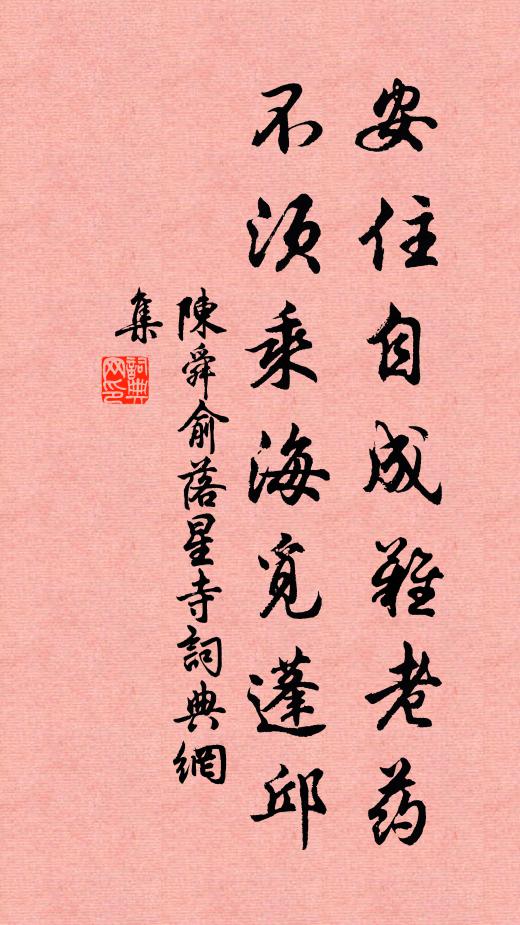 安住自成難老药
不須乘海覓蓬邱
陳舜俞落星寺詞典網
集
詞典网印